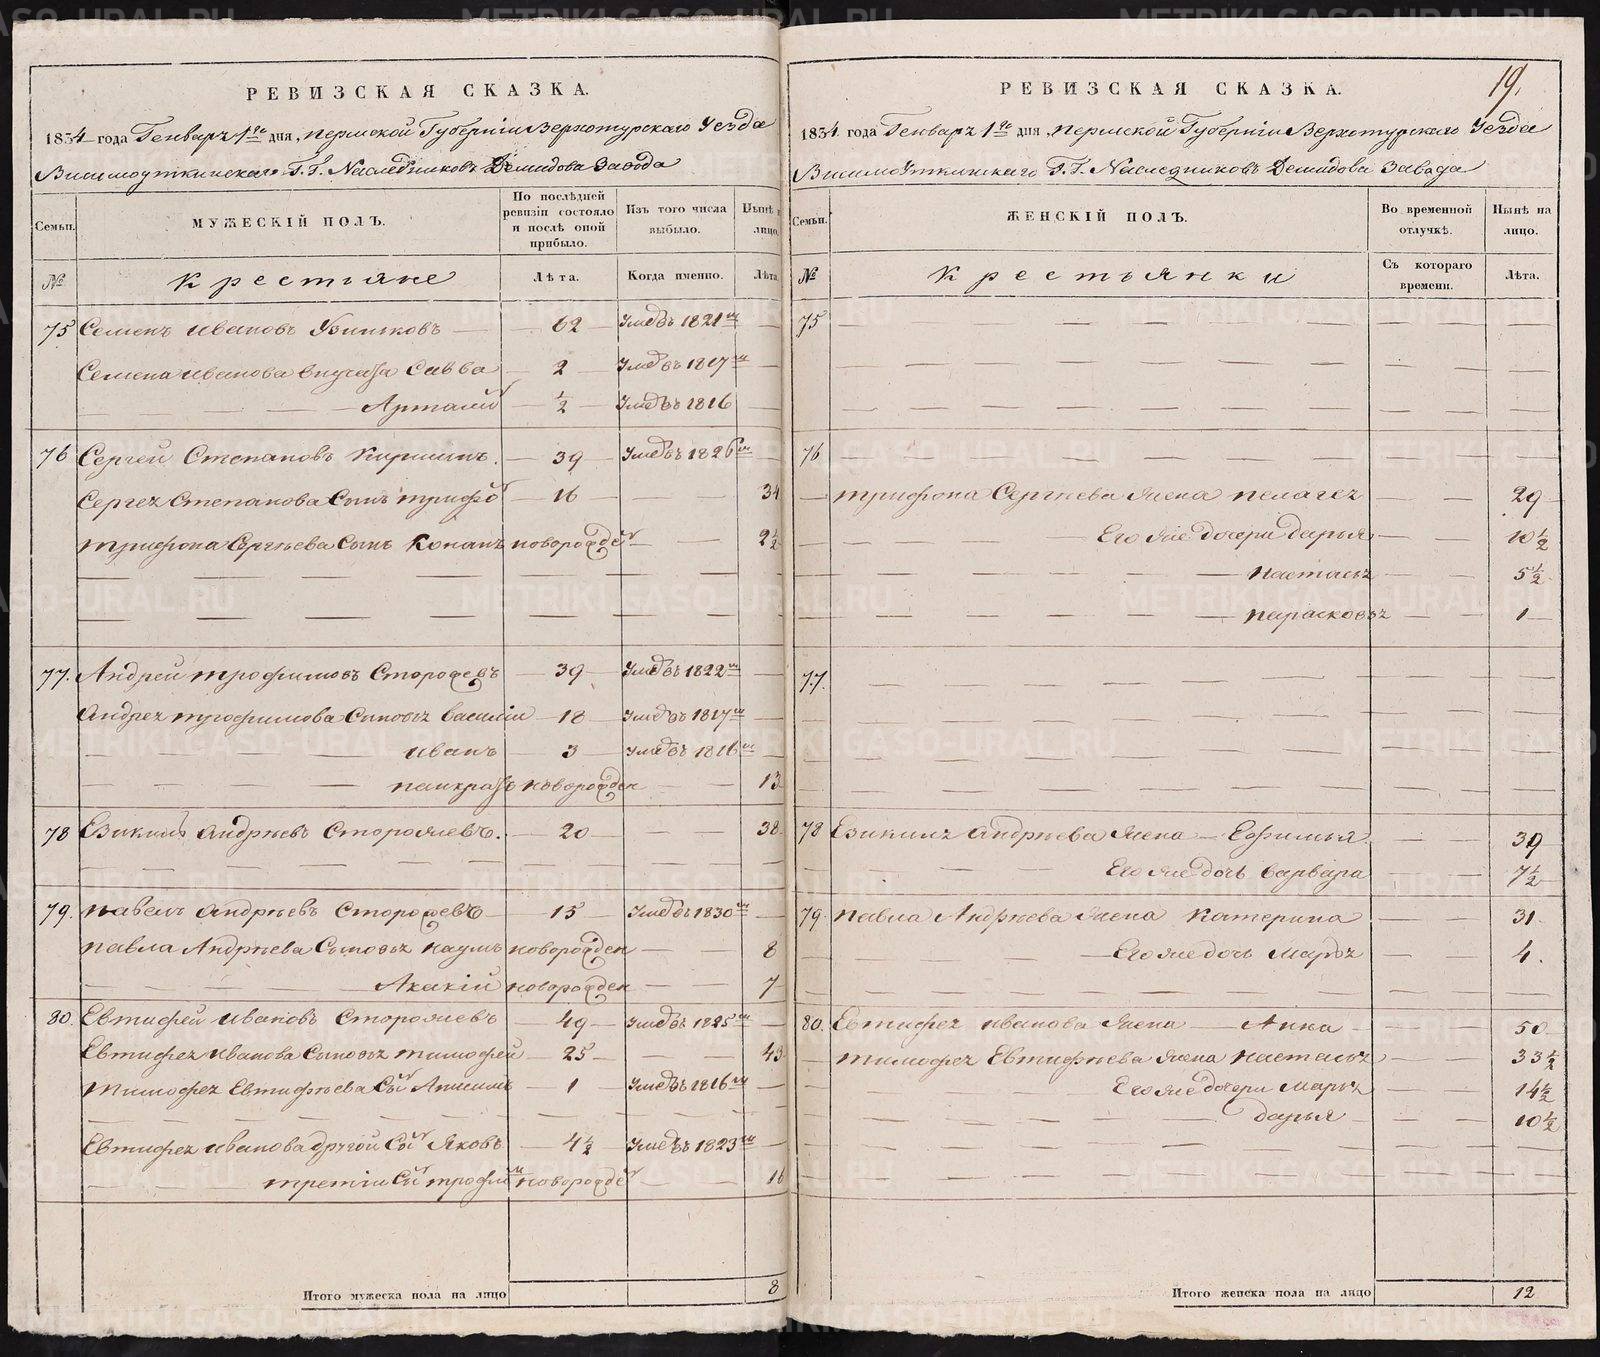 РЕВИЗСКАЯ СКАЗКА.
1834 года Генваря 1го дня, Пермской Губернiи Верхотурскаго Уезда
Висимоуткинскаго Г.Г. Наследниковъ Демидова Завода
Семьи.
МУЖЕСКIЙ ПОЛЪ.
По послѣдней ревизiи состояло и послѣ оной прибыло.
Изъ того числа выбыло.
Нынѣ на лицо.
№
Крестьяне
Лѣта.
Когда именно.
Лѣта.
75 Семенъ Ивановъ 62 Умеръ въ 1821м
Семена Иванова внучата Савва 2 Умеръ въ 1817м
Артамонъ ½ Умеръ въ 1816
76 Сергей Степановъ Киршинъ. 39 Умеръ въ 1826м
Сергея Степанова Сынъ Трифонъ 16 34
Трифона Сергѣева Сынъ Конанъ новорожден 2½
77. Андрей Трофимовъ Сторожевъ 39 Умеръ въ 1822м
Андрея Трофимова Сыновья Василiй 18 Умеръ въ 1817м
Иванъ 3 Умеръ въ 1816м
Панкратъ новорожден 13
78 Екимъ Андрѣевъ Сторожевъ. 20 38
79. Павелъ Андрѣевъ Сторожевъ 15 Умеръ въ 1830м
Павла Андрѣева Сыновья Наумъ новорожден 8
Акакiй новорожден 7
80. Евтифей Ивановъ Сторожевъ 49 Умеръ въ 1825м
Евтифея Иванова Сыновья Тимофей 25 43
Тимофея Евтифѣева Сынъ Анисимъ 1 Умеръ въ 1816м
Евтифея Иванова другой Сынъ Яковъ 4½ Умеръ въ 1823м
третiй Сынъ Трофимъ новорожден 16
Итого мужеска пола на лицо 8
19.
РЕВИЗСКАЯ СКАЗКА.
1834. года Генваря 1го дня, Пермской Губернiи Верхотурскаго Уезда
Висимоуткинскаго Г.Г. Наследниковъ Демидова Завода
Семьи.
ЖЕНСКIЙ ПОЛЪ.
Во временной отлучкѣ.
Нынѣ на лицо.
№
Крестьянки
Съ котораго времени.
Лѣта.
75
76
Трифона Сергѣева жена Пелагея 29
Его же дочери Дарья 10½
Настасья 5½
Парасковья 1
77.
78 Екима Андрѣева жена Ефимья 39
Его же дочь Варвара 7½
79. Павла Андрѣева жена Катерина 31
Его же дочь Марья 4.
80. Евтифея Иванова жена Анна 50
Тимофея Евтифѣева жена Настасья 33½
Его же дочери Марья 14½
Дарья 10½
Итого женска пола на лицо 12
METRIKI.GASO-URAL.RU